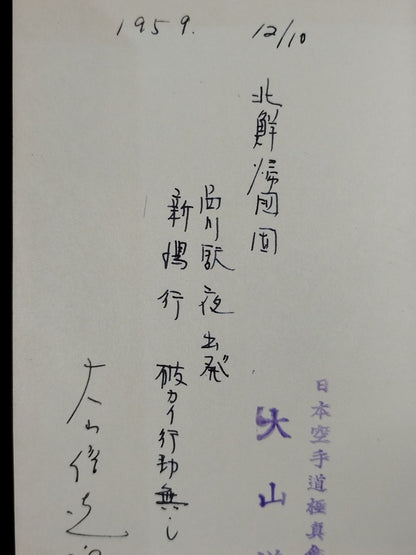 1959. 12/10
日本空手道極真
大山
北鮮帰國団
品川駅夜出発
新潟行 破カイ行動無し
大山倍達